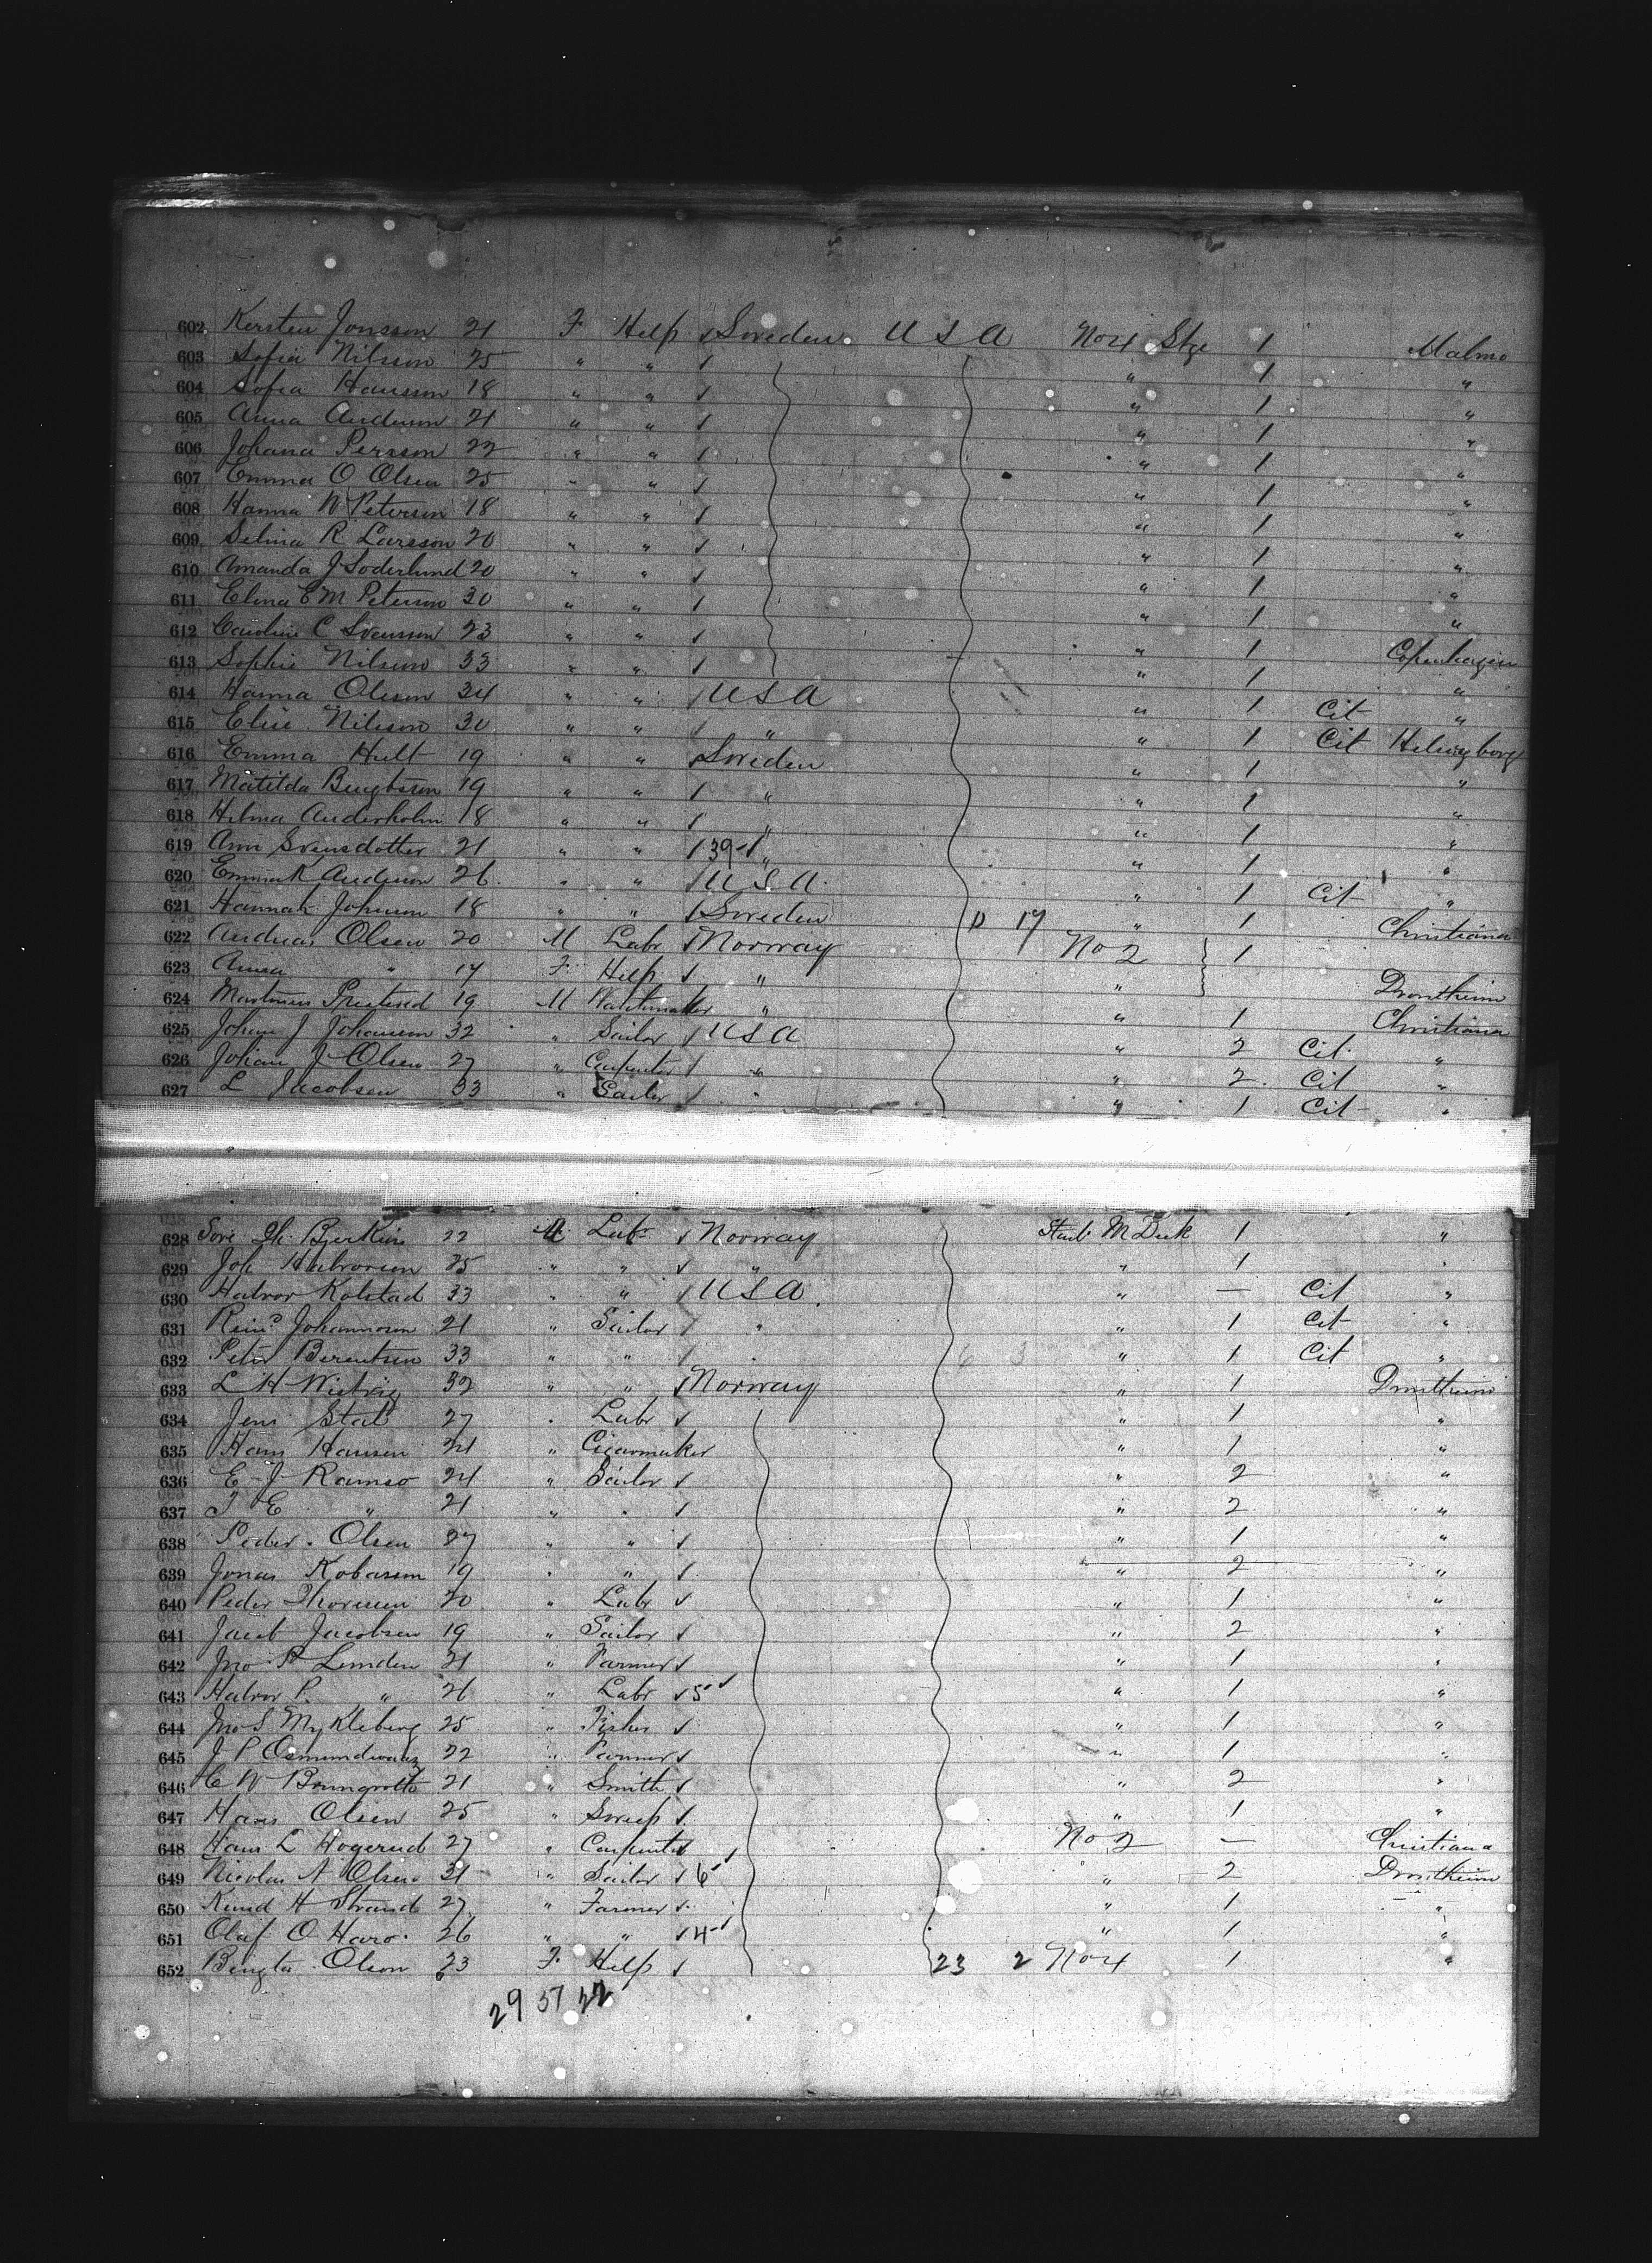 602 Kersten Jonsson 21 F Help Sweden U S A No 4 Stge 1 Malmo
603 Sofia Nilsson 25 " " 1 "
604 Sofia Hansson 18 " " " 1 "
605 Anna Anderson 21 " " " 1 "
606 Johana Persson 22 " " " 1 "
607 Emma O Olsen 25 " " " 1 "
608 Hanna N Peterson 18 " " " 1 "
609 Selina R Larsson 20 " " " 1 "
610 Amanda J Soderlund 20 " " " 1 "
611 Elina E M Peterson 30 " " " 1 "
612 Caroline C Svensson 23 " " " 1 "
613 Sophie Nilsson 33 " " " 1 Copenhagen
614 Hanna Olsson 34 " " U S A " 1 Cit "
615 Elsie Nilsson 30 " " " " 1 Cit Helsingborg
616 Emma Hult 19 " " Sweden " 1 "
617 Matilda Bengtsson 19 " " " " 1 "
618 Hilma Anderholm 18 " " " " 1 "
619 Ann Svensdotter 21 " " 39 " " 1 "
620 Emma K Anderson 26 " " U S A " 1 Cit "
621 Hannah Johnson 18 " " Sweden 17 " 1 Christiana
622 Andreas Olsen 20 M Labr Norway No 2 1
623 Anna " 17 F Help " " Drontheim
624 19 M Watchmaker " " 1 Christiana
625 Johan J Johansen 32 " Sailor U S A " 2 Cit "
626 Johan J Olsen 27 " Carpenter " " 2 Cit "
627 L Jacobsen 33 " Sailor " " 1 Cit "
628 22 M Labr Norway M Deck 1 "
629 Joh Halvorsen 25 " " " " 1 "
630 Halvor Kolstad 33 " " U S A " — Cit "
631 Johannesen 21 " Sailor " " 1 Cit "
632 Peter Berentsen 33 " " " 6 3 " 1 Cit "
633 L H 32 " " Norway " 1 Drontheim
634 Jens Stal 27 " Labr " 1 "
635 Hans Hansen 21 " Cigarmaker " 1 "
636 E J Ramso 24 " Sailor " 2 "
637 T E " 21 " " " 2 "
638 Peder Olsen 27 " " " 1 "
639 Jonas 19 " " " 2 "
640 Peder Thorsen 20 " Labr " 1 "
641 Jacob Jacobsen 19 " Sailor " 2 "
642 Jno P Lemden 21 " Farmer " 1 "
643 Halvor P " 26 " Labr 5 " 1 "
644 Jno S Mykleberg 25 " Fisher " 1 "
645 J P 22 " Farmer " 1 "
646 C W 21 " Smith " 2 "
647 Hans Olsen 25 " Sweep " 1 "
648 Hans L Hogerud 27 " Carpenter No 2 — Christiana
649 Nicolas N Olsen 31 " Sailor 6 " 2 Drontheim
650 Knud H Strand 27 " Farmer " 1 "
651 Olaf O Haro 26 " " 4 " 1 "
652 Bengta Olson 23 F Help 23 2 No 4 1 "
29 57 22